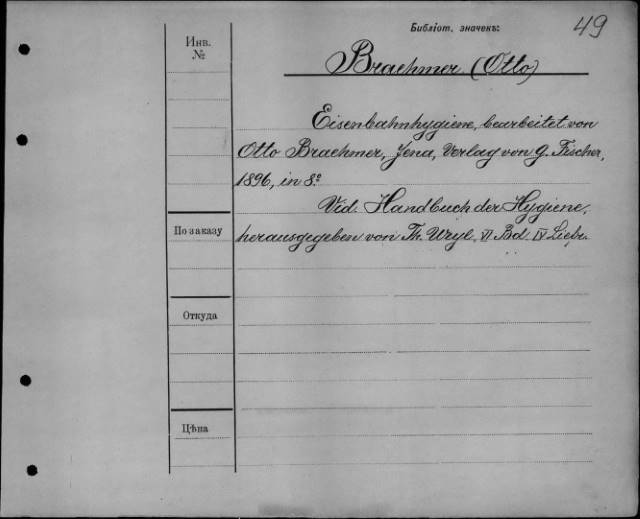 Библіот. значекъ:
49
Инв.
№
Braehmer (Otto)
Eisenbahnhygiene, bearbeitet von
Otto Braehmer, Jena, Verlag von G. Fischer,
1896, in 8º
Vid. Handbuch der Hygiene,
herausgegeben von Th. Weyl. VI Bd. IV Liefr.
По заказу
Откуда
Цѣна